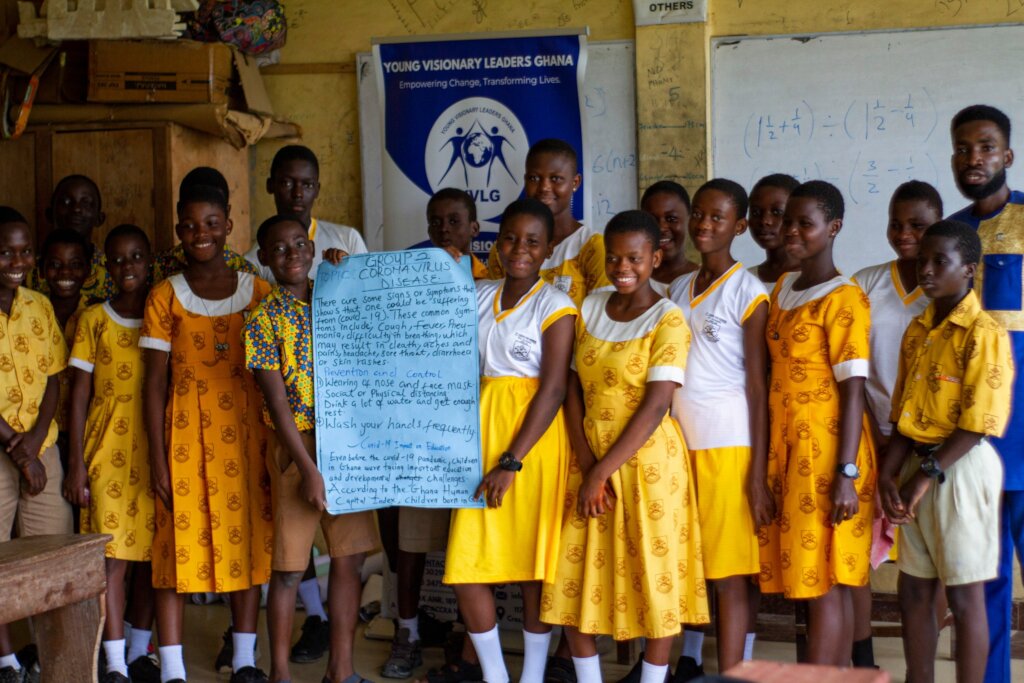 OTHERS
YOUNG VISIONARY LEADERS GHANA
Empowering Change, Transforming Lives.
YOUNG VISIONARY LEADERS GHANA
YVLG
VISION
GROUP 2
TOPIC: CORONAVIRUS
DISEASE
There are some signs or Symptoms that
shows that, one could be "suffering
from (covid-19). These common Symp-
toms include; Cough, fever, Pneu-
monia, difficulty in breathing, which
may result in death, aches and
pains, headache, sore throat, diarrhoea
or skin rashes.
Prevention and Control
Wearing of nose and face mask
Social or Physical distancing
Drink a lot of water and get enough
rest.
Wash your hands frequently
Covid-19 Impact on Education
Even before the covid-19 pandemic, children
in Ghana were facing important education
and developmental challenges.
According to the Ghana Human
Capital Index, Children born in
(1 1/2 + 1/4) ÷ (1 1/2 - 1/4)
6(n+2
12